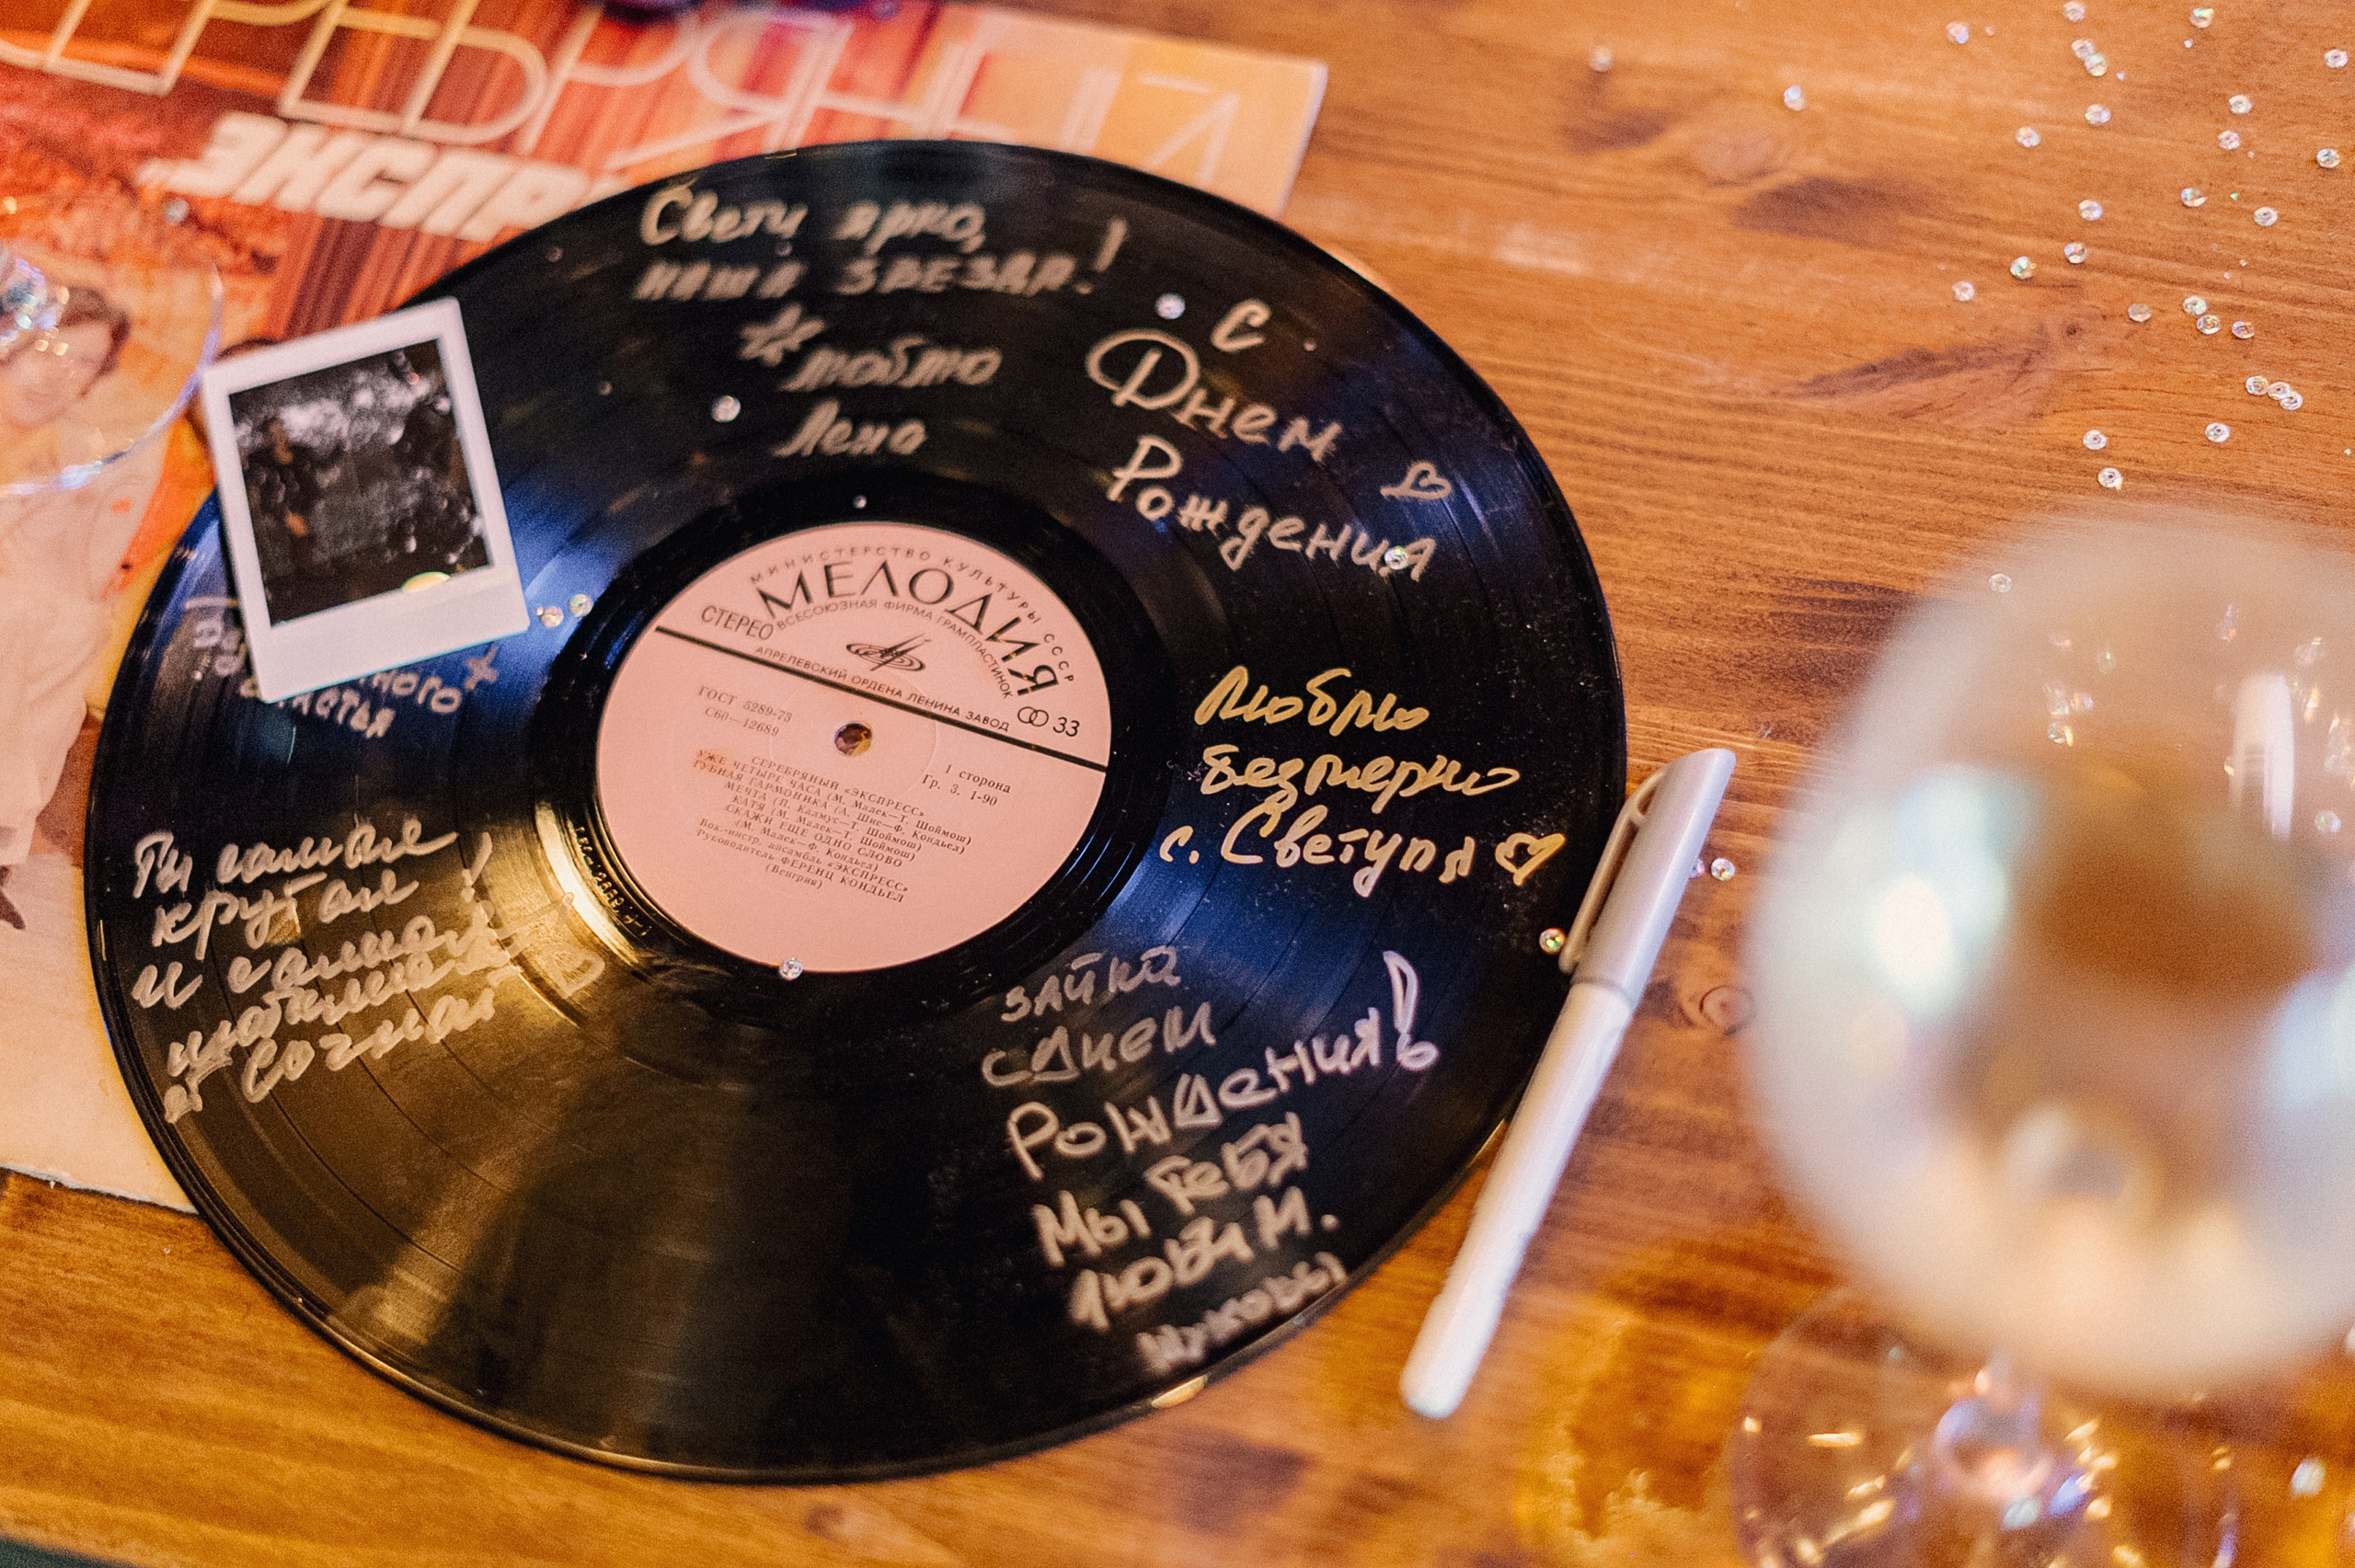 ЭКСПР
Свети ярко,
наша звезда!
люблю
Лена
С
Днем
Рождения
Люблю
безмерно
с. Светуля
зайка
с Днем
Рождения!
Мы тебя
любим.
Ты самая
крутая
и самая
сочная
ного
счастья
МИНИСТЕРСТВО КУЛЬТУРЫ СССР
МЕЛОДИЯ
ВСЕСОЮЗНАЯ ФИРМА ГРАМПЛАСТИНОК
СТЕРЕО
АПРЕЛЕВСКИЙ ОРДЕНА ЛЕНИНА ЗАВОД
33
ГОСТ 5289-73
С60—12689
1 сторона
Гр. 3. 1-90
СЕРЕБРЯНЫЙ «ЭКСПРЕСС»
УЖЕ ЧЕТЫРЕ ЧАСА (М. Малек—Т. Шоймош)
ГУБНАЯ ГАРМОНИКА (А. Шис—Ф. Кондьел)
МЕЧТА (П. Калмус—Т. Шоймош)
КАТЯ (М. Малек—Т. Шоймош)
СКАЖИ ЕЩЕ ОДНО СЛОВО
(М. Малек—Ф. Кондьел)
Вок.-инстр. ансамбль «ЭКСПРЕСС»
Руководитель ФЕРЕНЦ КОНДЬЕЛ
(Венгрия)